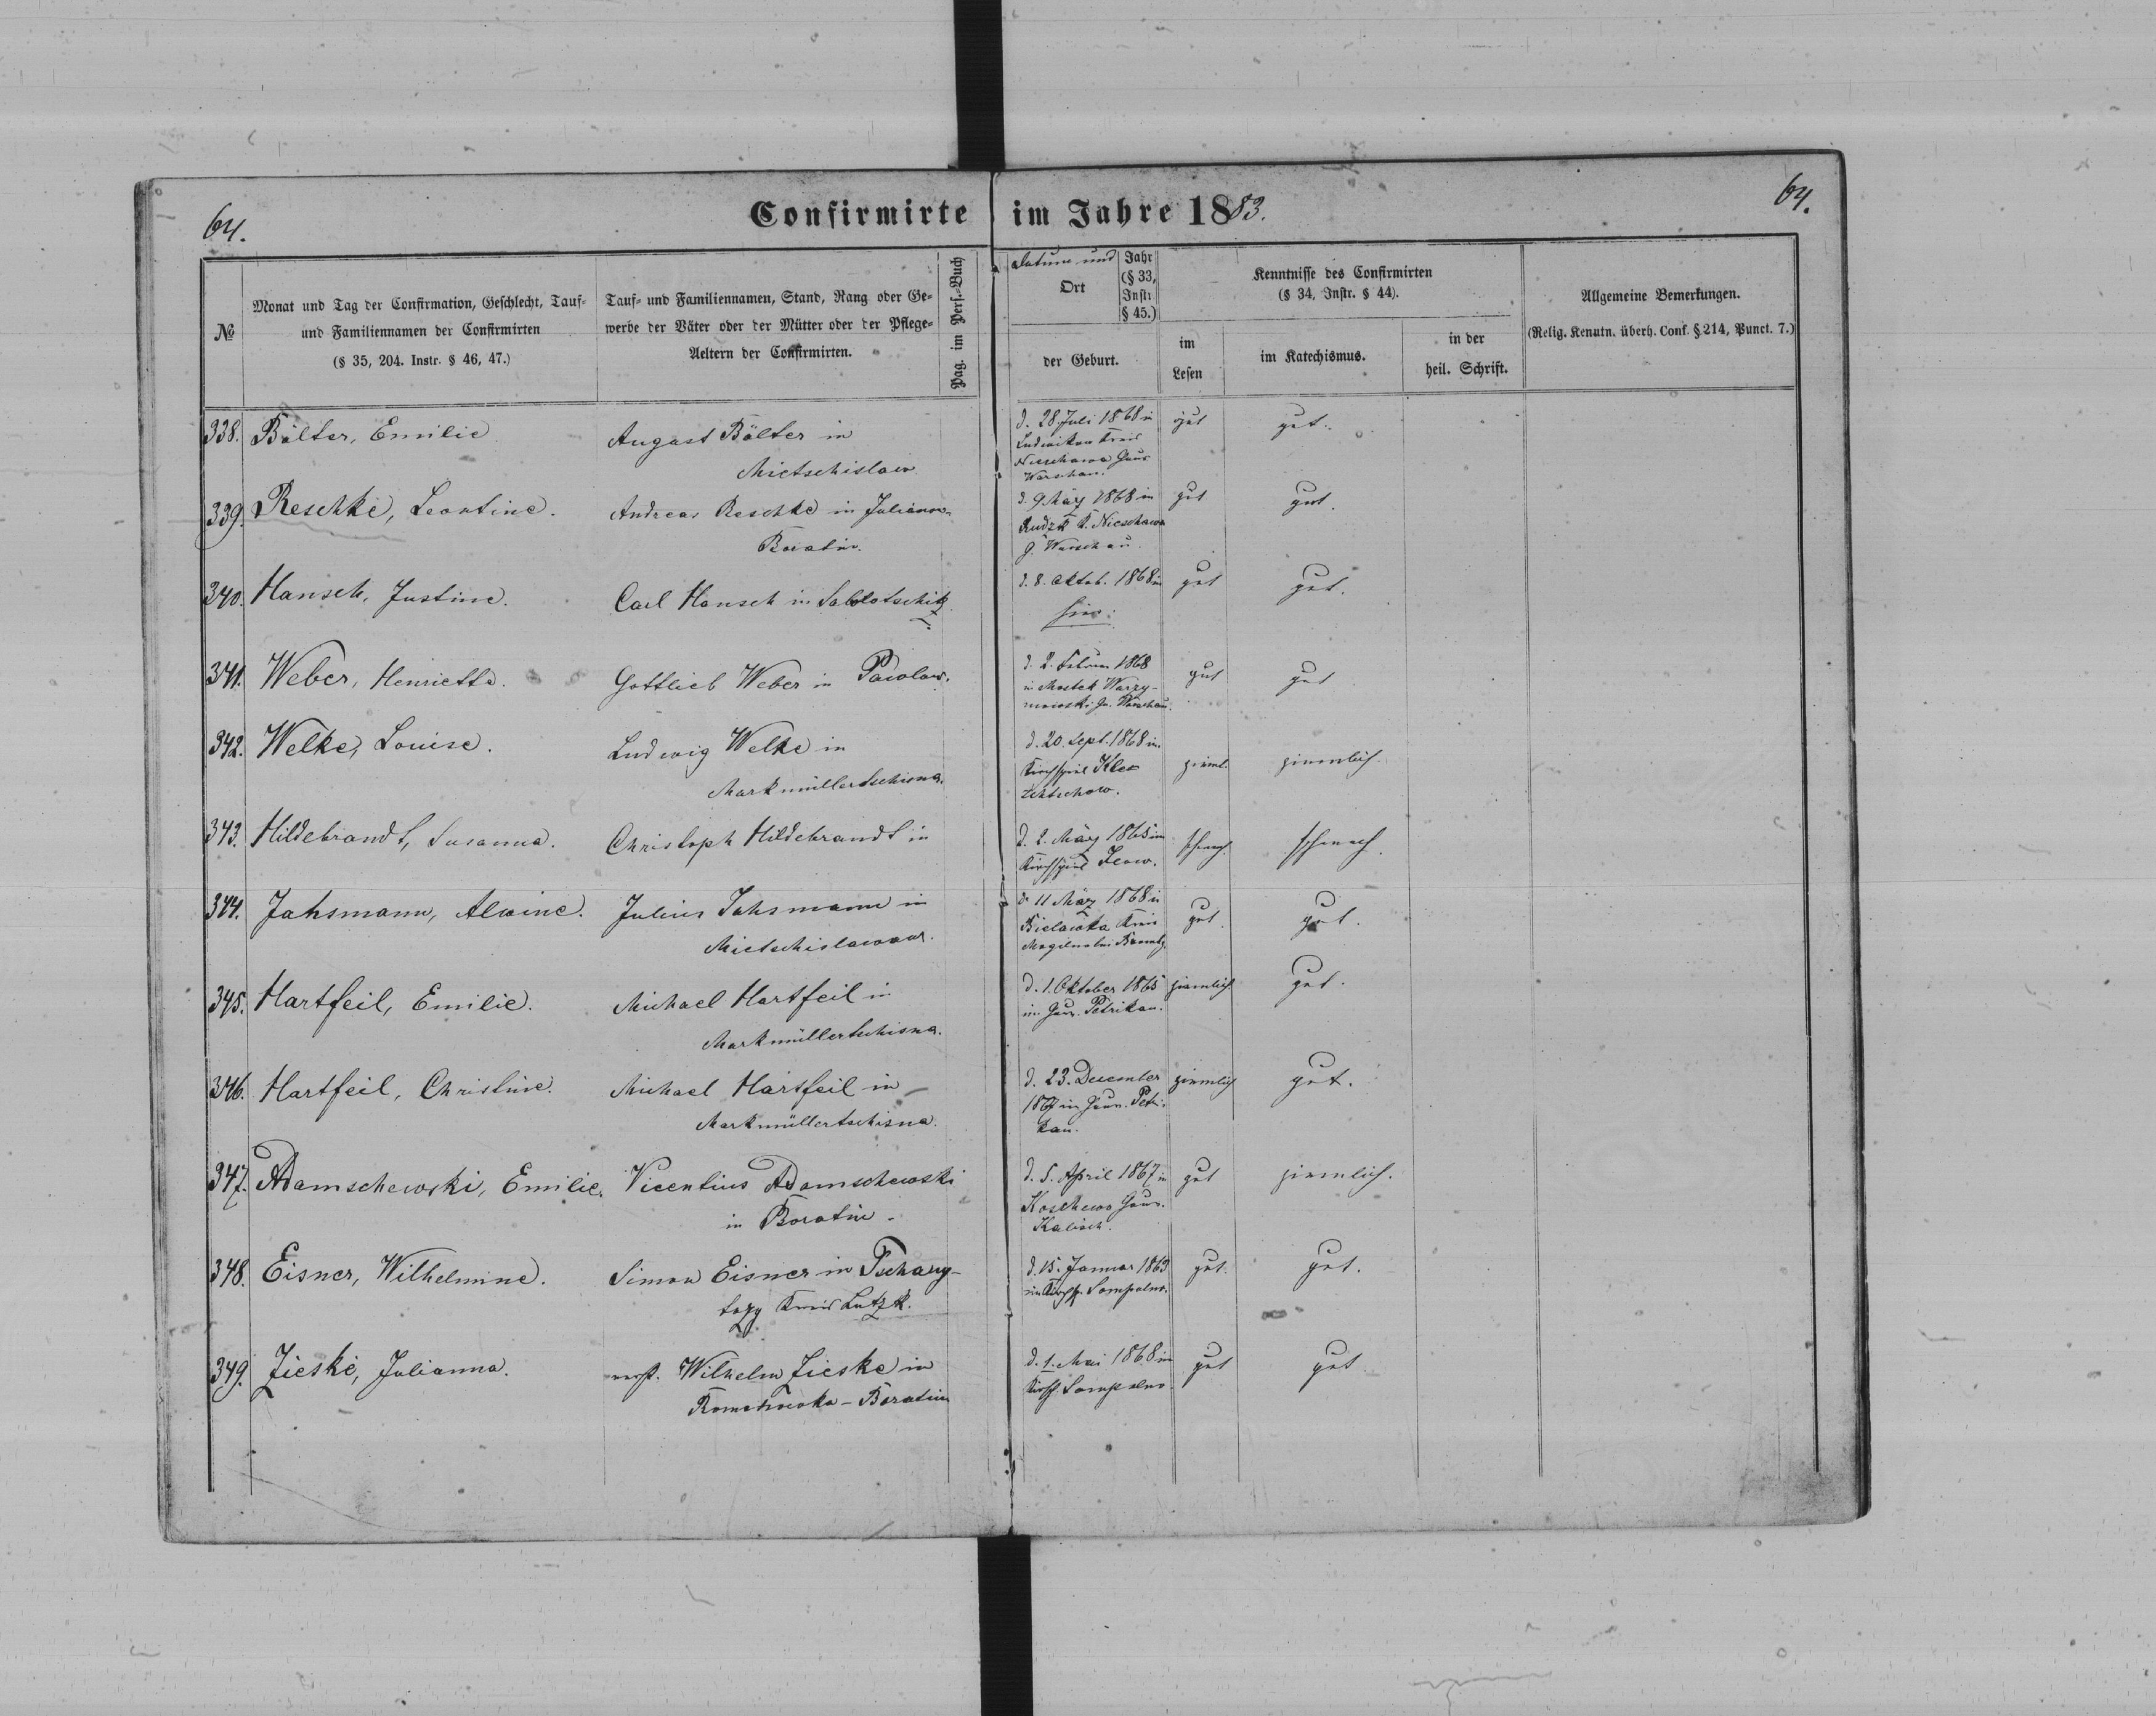 64.
Confirmirte im Jahre 1883.
64.
№
Monat und Tag der Confirmation, Geschlecht, Tauf-
und Familiennamen der Confirmirten
(§ 35, 204. Instr. § 46, 47.)
Tauf- und Familiennamen, Stand, Rang oder Ge-
werbe der Väter oder der Mütter oder der Pflege-
Aeltern der Confirmirten.
Pag. im Pers.-Buch
Datum und
Ort
Jahr
(§ 33,
Instr
§ 45.)
der Geburt.
Kenntnisse des Confirmirten
(§ 34, Instr. § 44).
im
Lesen
im Katechismus.
in der
heil. Schrift.
Allgemeine Bemerkungen.
(Relig. Kenntn. überh. Conf. § 214, Punct. 7.)
338. Bölter, Emilie
August Bölter in
Mietschislaw
d. 28 Juli 1868 in
Kreis
Nieschawa Gouv
Warschau.
gut
gut.
339. Reschke, Leontine.
Andreas Reschke in Julianow-
Boratin.
d. 9 März 1868 in
K. Nieschawa
G. Warschau.
gut
gut.
340. Hansch, Justine.
Carl Hansch in Sablotschitz
d. 8. Oktob. 1868 in
hier.
gut
gut.
341. Weber, Henrietta.
Gottlieb Weber in Pawlow.
d. 2. Februar 1868
in Mostek Warzy-
mowski G. Warschau.
gut
gut
342. Welke, Louise.
Ludwig Welke in
Markmüllertschisna.
d. 20. Sept. 1868 in
Kirchspiel
ziml.
ziemlich.
343. Hildebrandt, Susanna.
Christoph Hildebrandt in
d. 2. März 1865 im
Kirchspiel
schwach.
schwach.
344. Jahsmann, Alwine.
Julius Jahsmann in
d. 11 März 1868 in
Bielawka Kreis
gut.
gut.
345. Hartfeil, Emilie.
Michael Hartfeil in
Markmüllertschisna.
d. 1. Oktober 1865
im Gouv. Petrikau.
ziemlich
gut.
346. Hartfeil, Christine.
Michael Hartfeil in
Markmüllertschisna.
d. 23. December
1867 in Gouv. Petri-
kau.
ziemlich
gut.
347. Adamschewski, Emilie.
Vicentius Adamschewski
in Boratin.
d. 5. April 1867 in
Koschewo Gouv.
Kalisch.
gut
ziemlich.
348. Eisner, Wilhelmine.
Simon Eisner in
Kreis Lutzk.
d. 15. Januar 1869
im Kirchsp. Sompolno.
gut.
gut.
349. Zieske, Julianna.
verst. Wilhelm Zieske in
Romanowka-Boratin
d. 1. Mai 1868 in
Kirchsp. Sompolno.
gut
gut